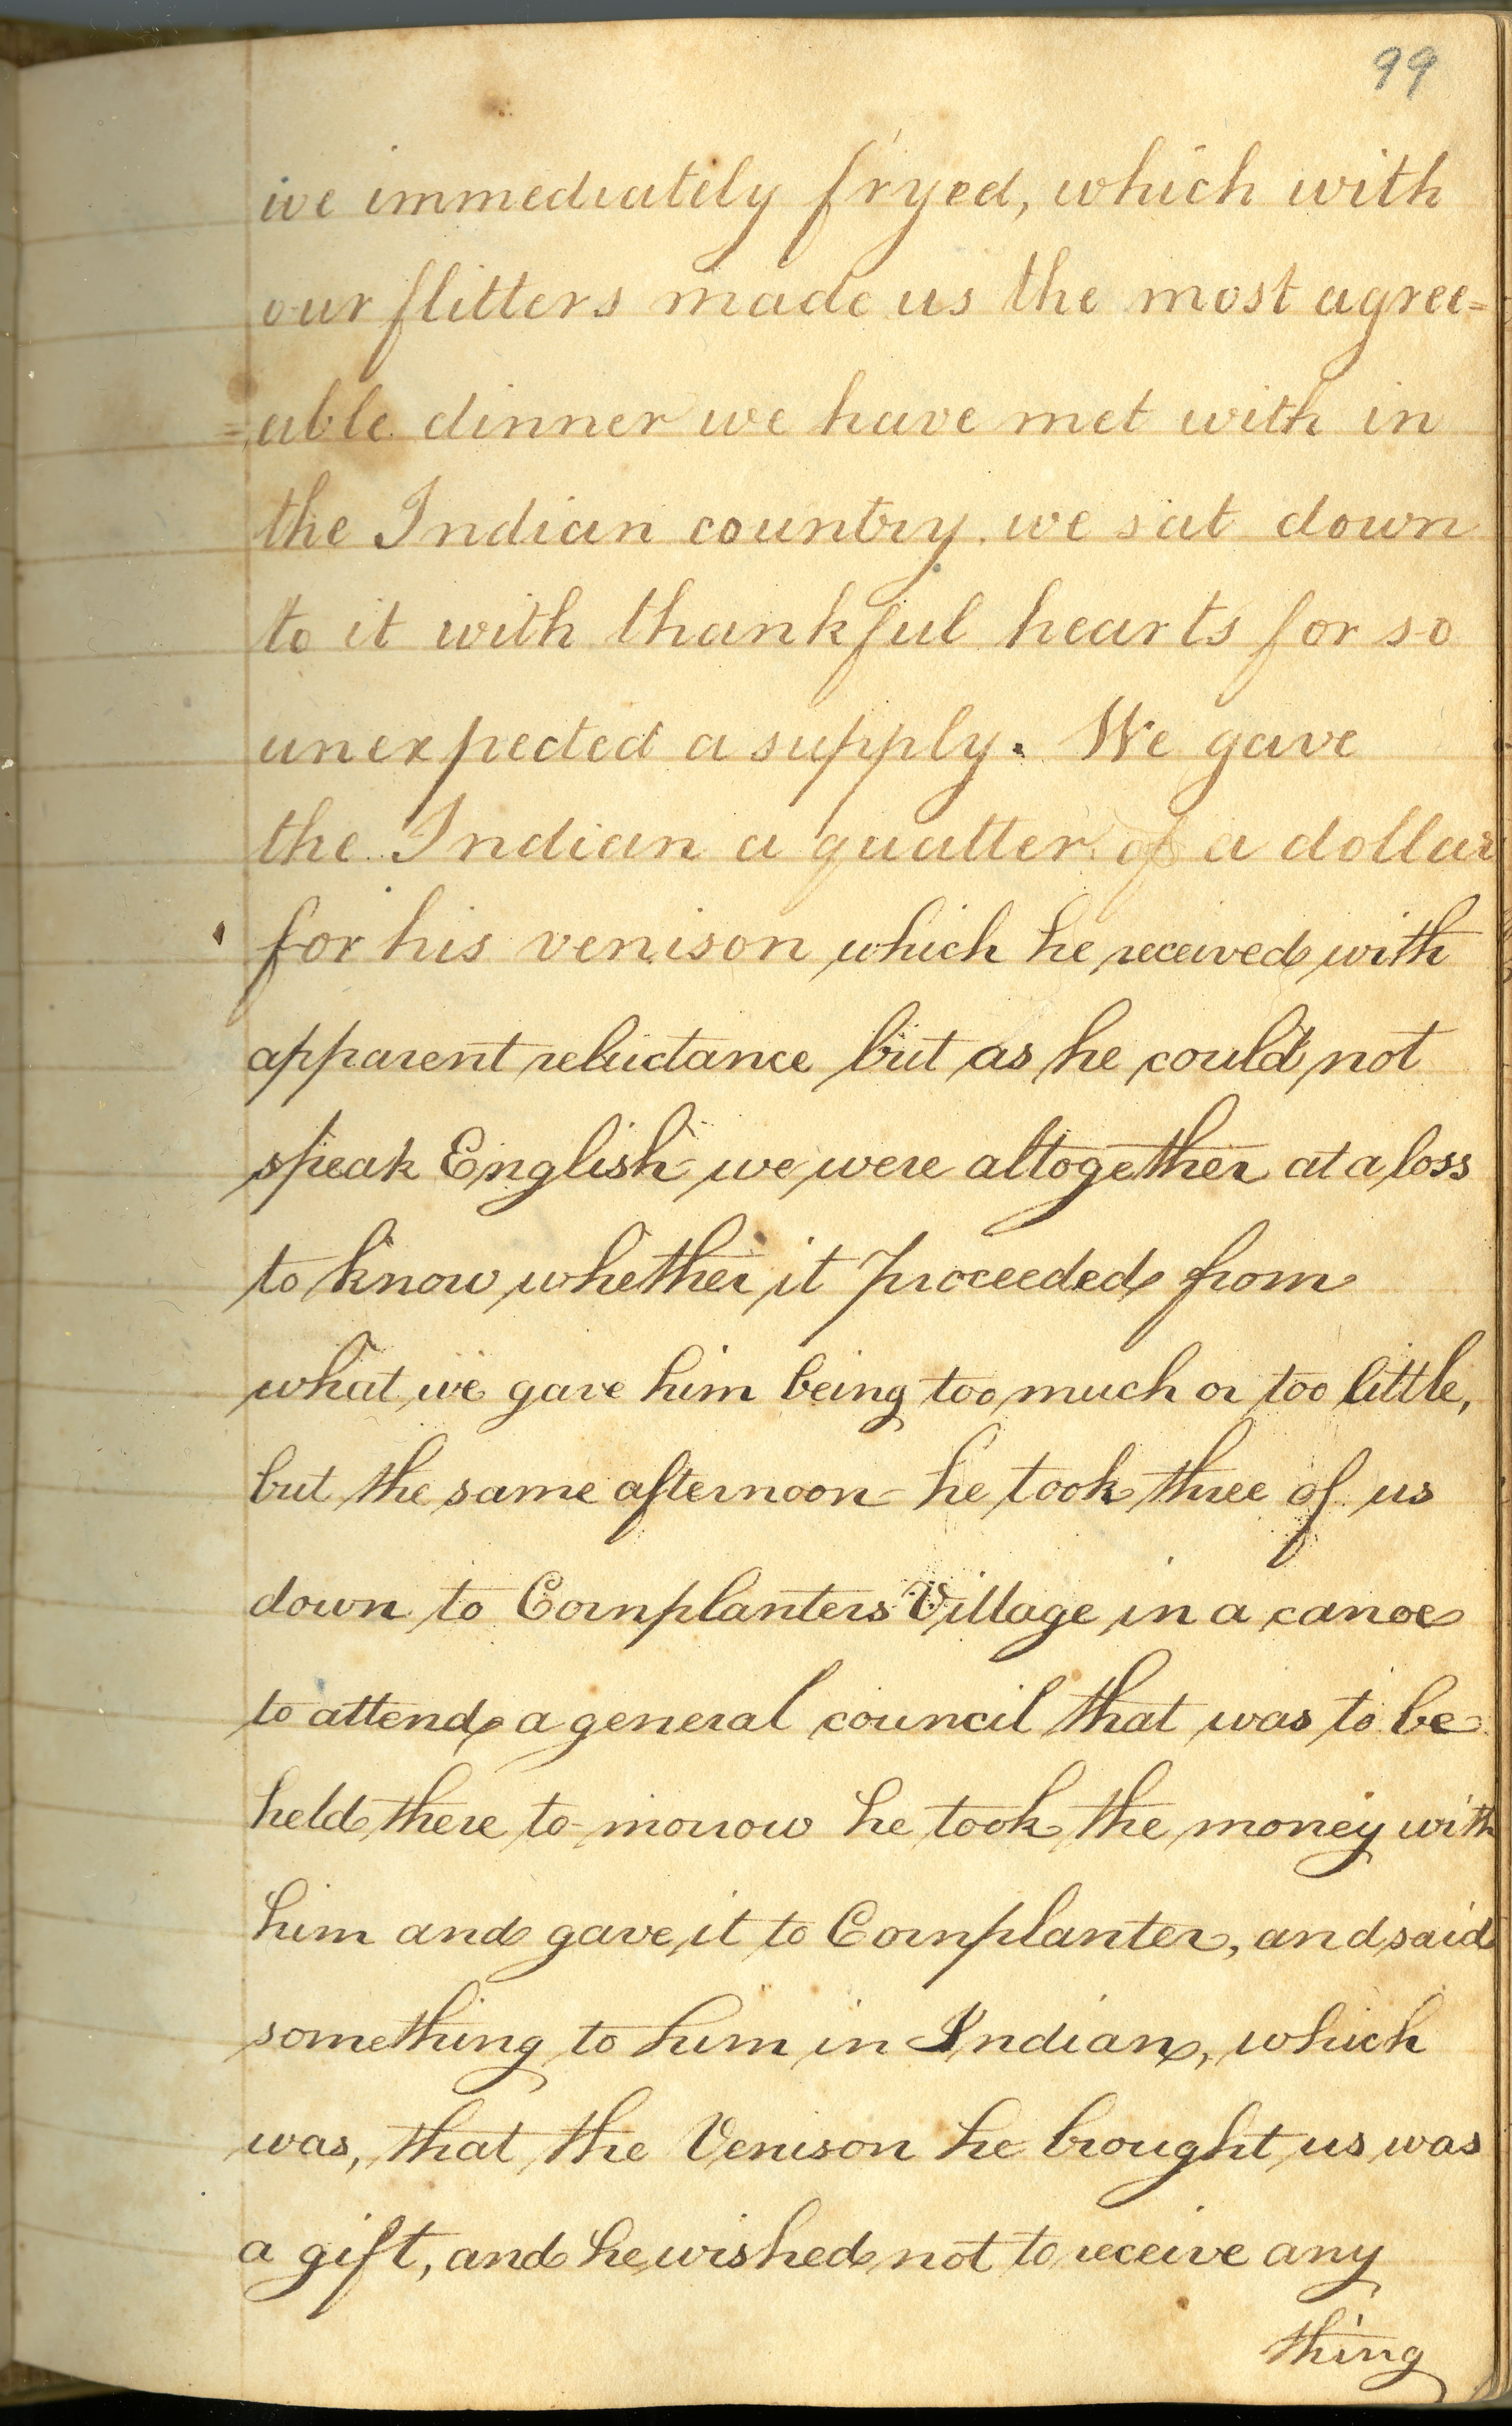 99
we immediately fryed, which with
our flitters made us the most agree=
=able dinner we have met with in
the Indian country. we sat down
to it with thankful hearts for so
unexpected a supply. We gave
the Indian a quatter of a dollar
for his venison which he received with
apparent reluctance but as he could not
speak English we were altogether at a loss
to know whether it proceeded from
what we gave him being too much or too little,
but the same afternoon he took three of us
down to Cornplanters Village in a canoe
to attend a general council that was to be
held there to-morrow he took the money with
him and gave it to Cornplanter, and said
something to him in Indian, which
was, that the Venison he brought us was
a gift, and he wished not to receive any
thing